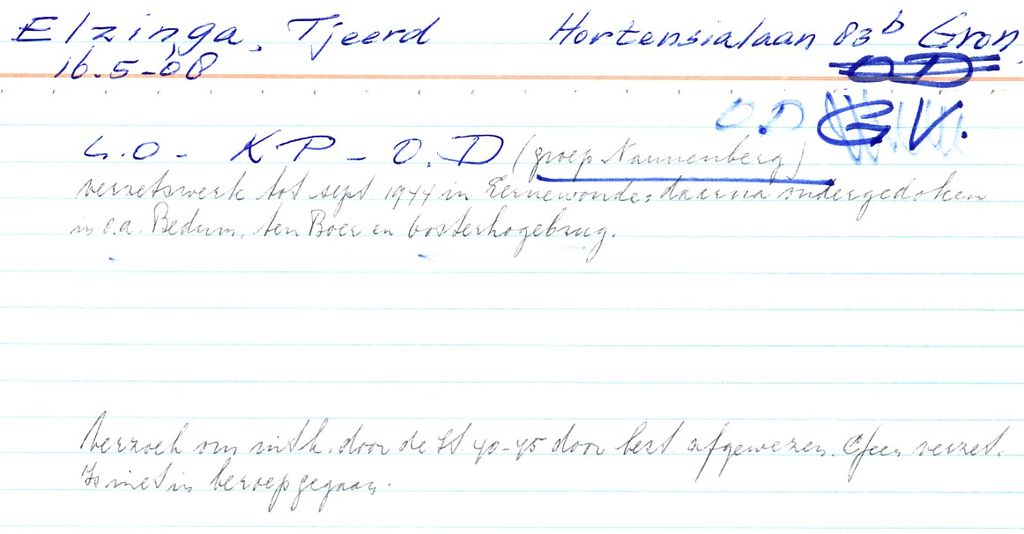 Elzinga, Tjeerd Hortensialaan 83b Gron.
16.5-08 OD
O.D G.V.
L.O - KP - O.D (groep Nannenberg)
verzetswerk tot sept 1944 in Eernewoude; daarna ondergedoken
in o.a. Bedum, ten Boer en Oosterhogebrug.
Verzoek om uitk. door de St 40-45 door best afgewezen. Geen verzet.
Is niet in beroep gegaan.